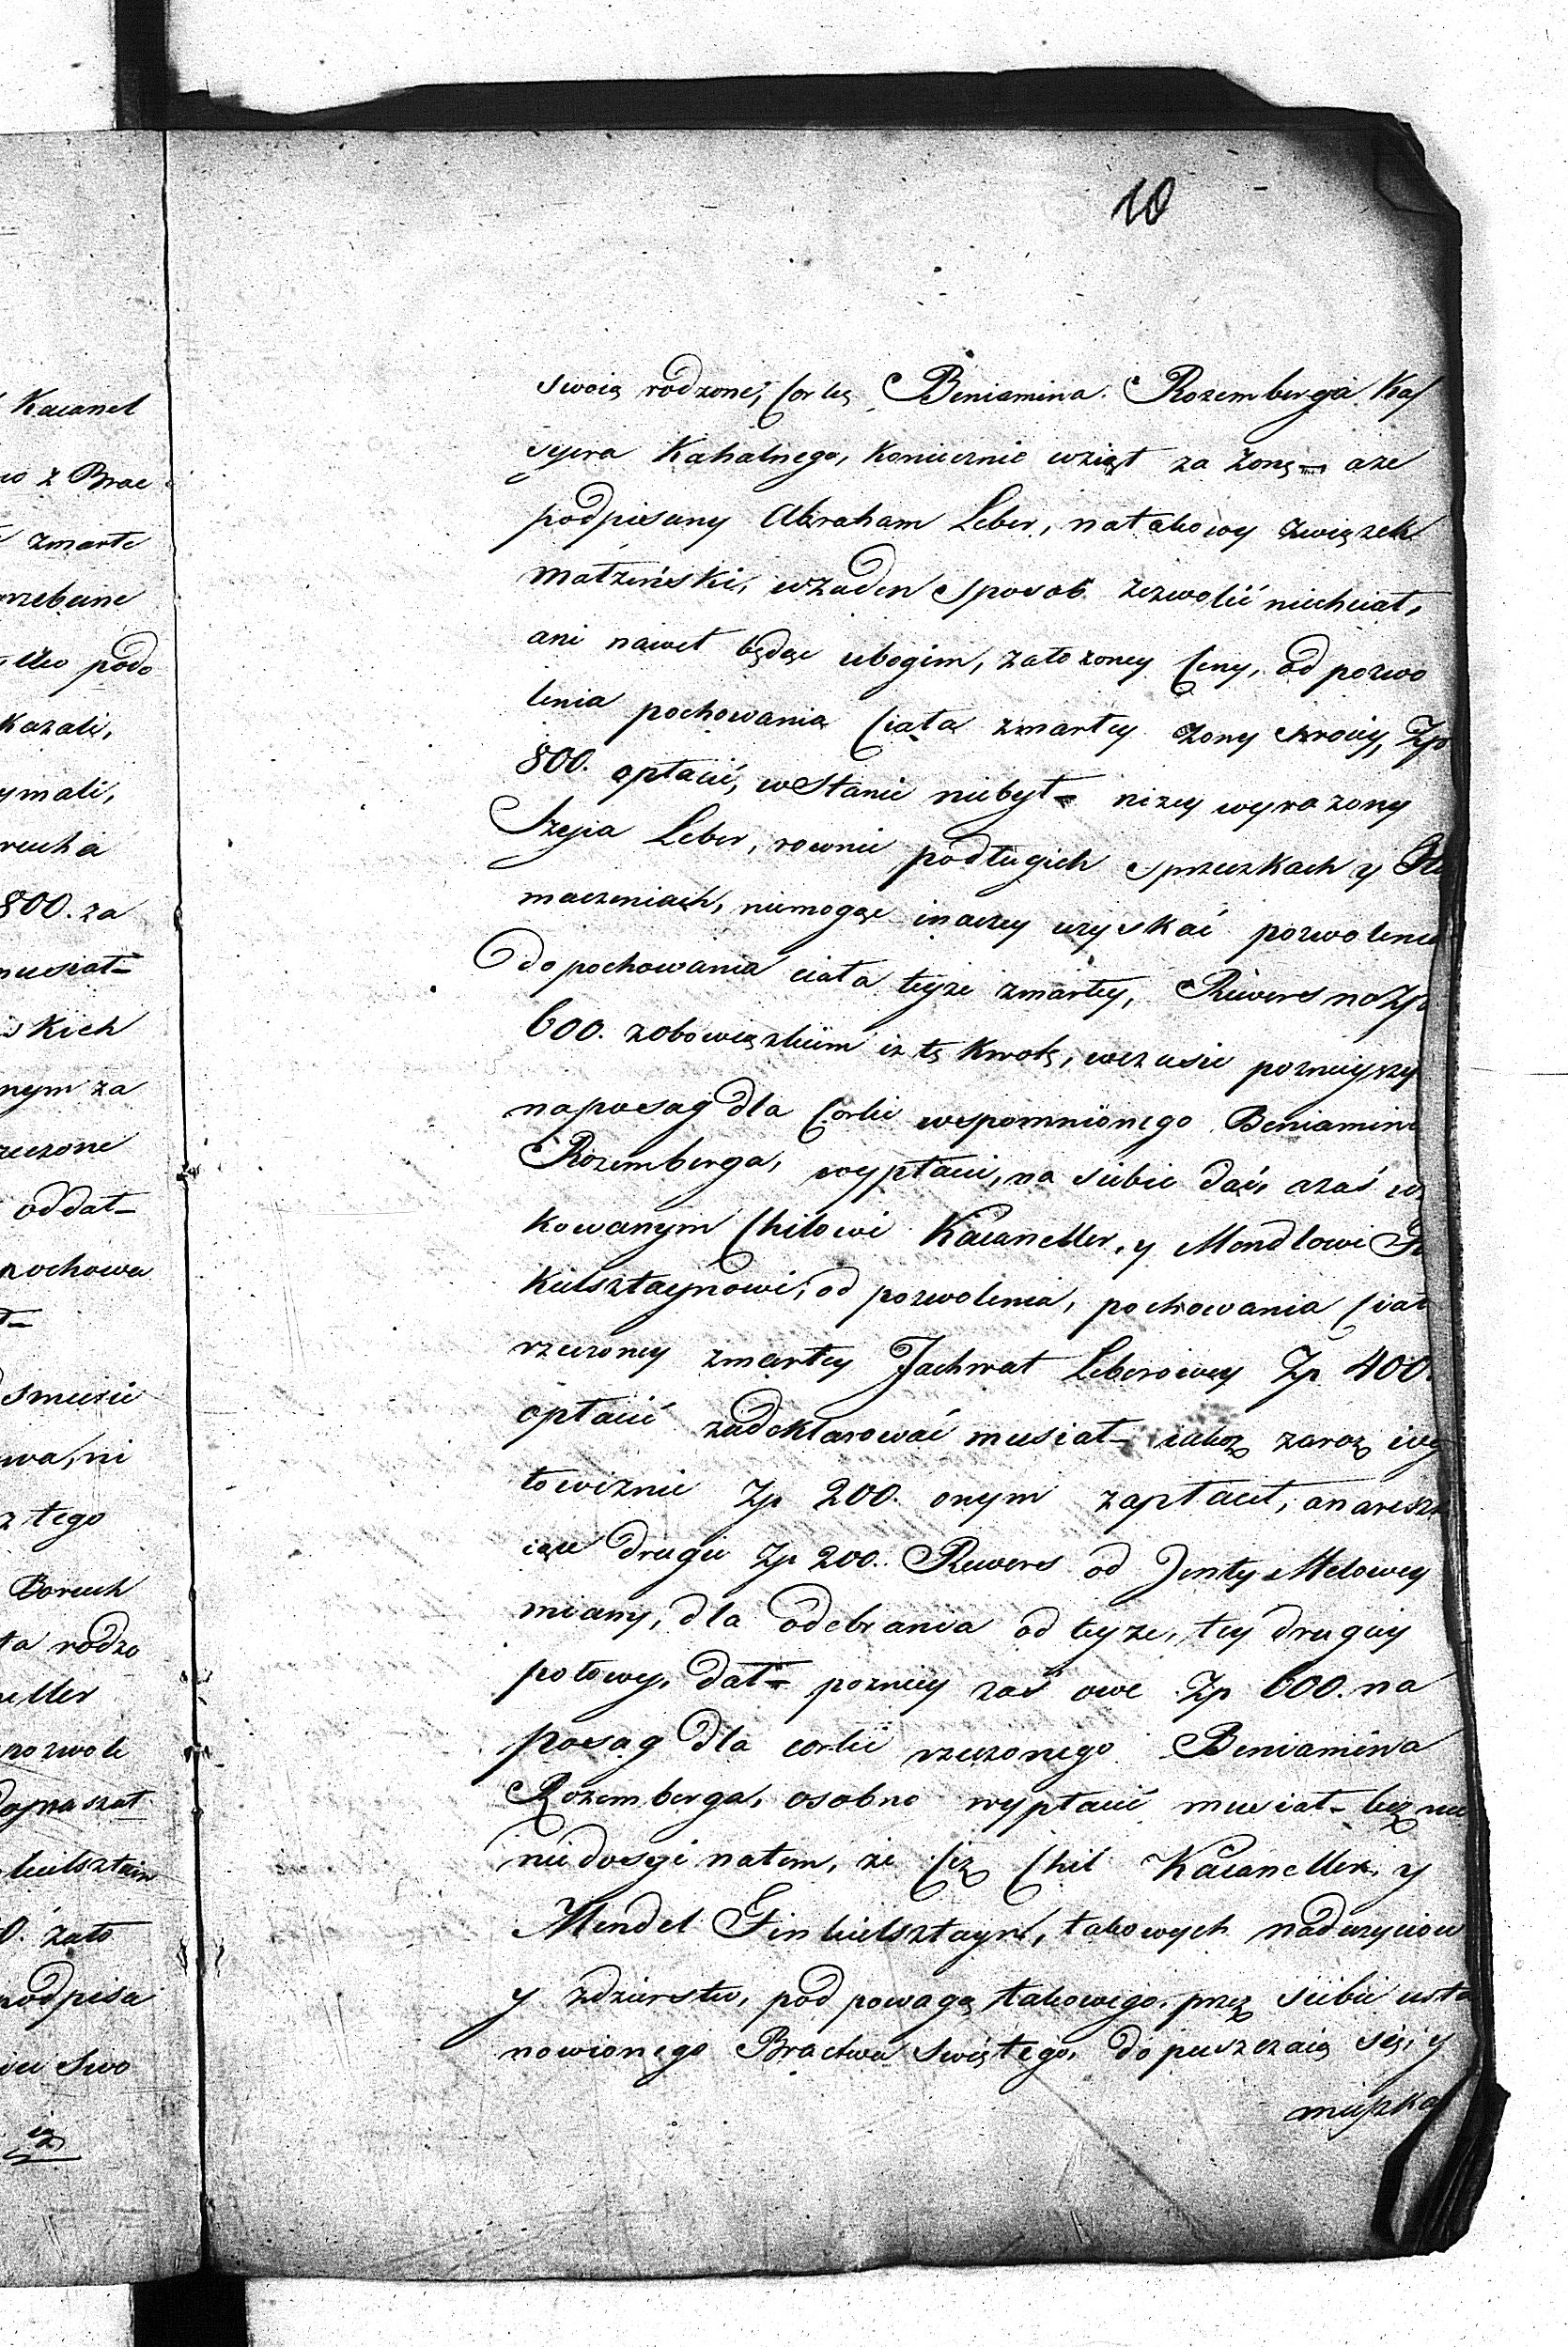 Kacanel
wo z Brac
zmarłe
grzebane
podo
kazali,
ymali,
rucha
800. za
musiał –
skich
nym za
rzeczone
oddał –
pochowa
smucie
wa, ni
z tego
Boruch
ta rodzo
eller
pozwole
dopraszał
kielsztain
0. zało
podpisa
swo
iż
10
swoią rodzoney Corkę Beniamina Rozemberga Kas
syera Kahalnego, koniecznie wziął za żonę – aże
podpisany Abraham Leber, na takowy związek
małżeński, wżaden sposob zezwolić niechciał,
ani nawet będąc ubogim, założoney Ceny, od pozwo
lenia pochowania Ciała zmarłey żony swoiey, Zp
800. opłacić, wstanie niebył – niżey wyrażony
Szyia Leber, rownie podługich sprzeczkach y
maczeniach, niemogąc inaczey uzyskać pozwolenia
do pochowania ciała teyże zmarłey, Rewers na Zp
600. zobowiązkiem iż tę kwotę, wczasie poznieyszy
na posag dla Corki wspomnionego Beniamina
Rozemberga, wypłaci, na siebie dać, a zaś
kowanym Chilowi Kacaneller, y Mendlowi
kielsztaynowi, od pozwolenia, pochowania Ciał
rzeczoney zmarłey Jachwat Leberowey Zp 400.
opłacić zadeklarować musiał – iakoż zaraz wg
towiznie Zp 200. onym zapłacił, a na reszt
iące drugie Zp 200. Rewers od Jenty Melowey
miany, dla odebrania od teyże, tey drugiey
połowy, dał – pozniey zaś owe Zp 600. na
posag dla corki rzeczonego Beniamina
Rozemberga, osobno wypłacić musiał – lecz
nie dosyć natem, że Ciż Chil Kacaneller, y
Mendel Finkielsztayn, takowych nadużyciow
y zdzierstw, pod powagą takowego, przez siebie usta
nowionego Bractwa swiętego, dopuszczaią się, y